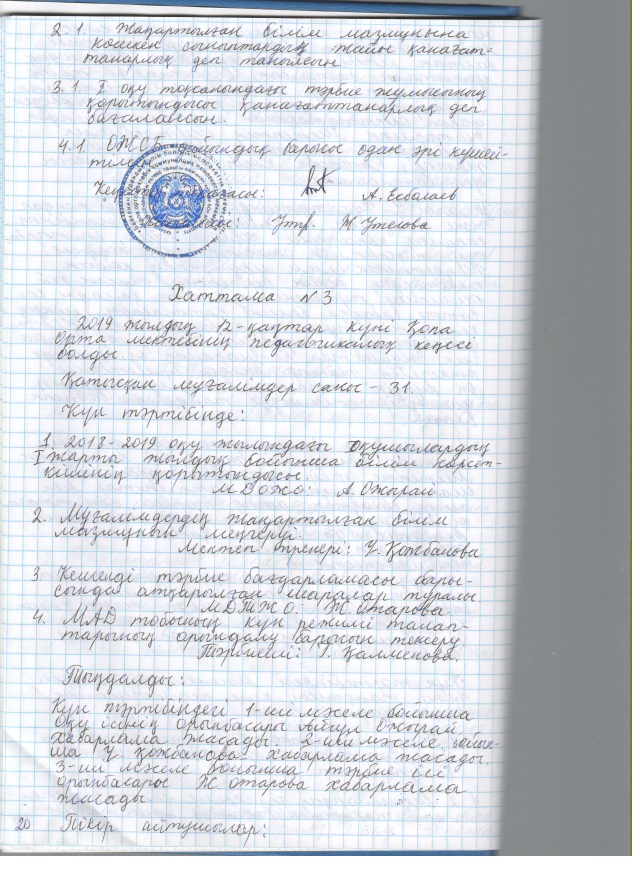 2.1. Жаңартылған білім мазмұнына
көшкен сыныптардың жайы қанағат-
танарлық деп танылсын
3.1 I оқу тоқсанындағы тәрбие жұмысының
қорытындысы қанағаттанарлық деп
бағалансын.
4.1. ОЖСБ дайындық барысы одан әрі күшей-
тілсін
Кеңес төрағасы: А. Есбалаев
Утв. Ж Утегова
Хаттама N 3
2019 жылдың 12-қаңтар күні Қопа
орта мектебінің педагогикалық кеңесі
болды
Қатысқан мұғалімдер саны - 31.
Күн тәртібінде:
1. 2018-2019 оқу жылындағы оқушылардың
I жарты жылдық бойынша білім көрсет-
кішінің қорытындысы.
МДОЖО: А. Ожырай
2. Мұғалімдердің жаңартылған білім
мазмұнын меңгеруі.
Мектеп тренері: У. Қожбанова
3 Кешенді тәрбие бағдарламасы бары-
сында атқарылған шаралар туралы
МДТЖО: Ж Отарова
4. МАД тобының күн режимі талап-
тарының орындалу барысын тексеру.
Тәрбиеші: Г. Қалменова.
Тыңдалды:
Күн тәртібіндегі 1-ші мәселе бойынша
Оқу ісінің орынбасары Айгүл Ожырай
хабарлама жасады. 2-ші мәселе бойын-
ша У. Қожбанова хабарлама жасады.
3-ші мәселе бойынша тәрбие ісі
орынбасары Ж Отарова хабарлама
жасады
20 Пікір айтушылар: